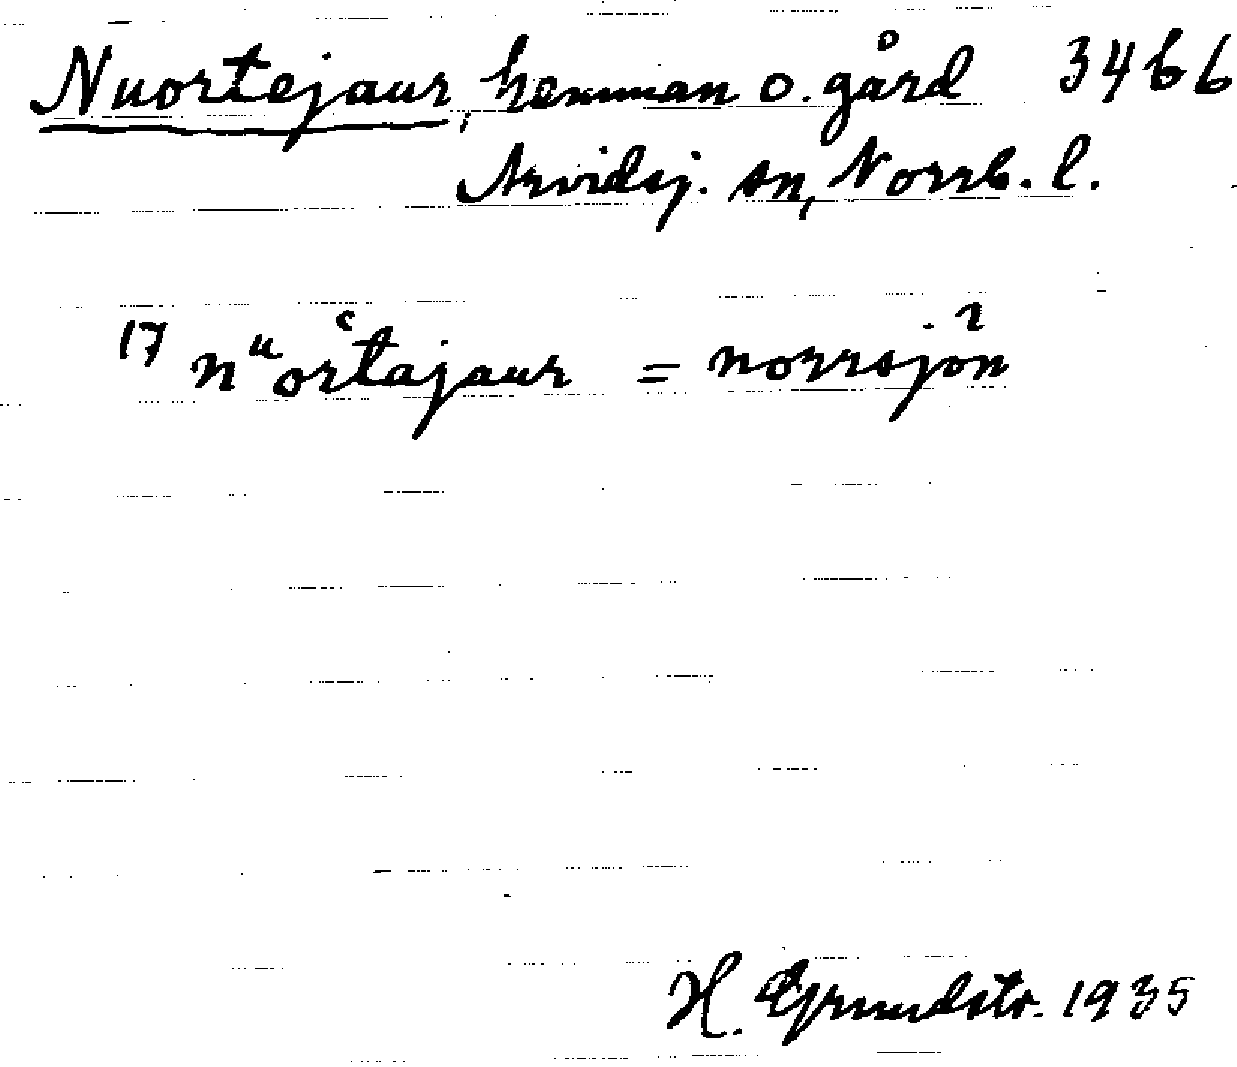 Nuortejaur, hemman o. gård 3466
Arvidsj. sn, Norrb. l.
17 nᵘorʿtajaur = norrsjön
H. Grundstr. 1935